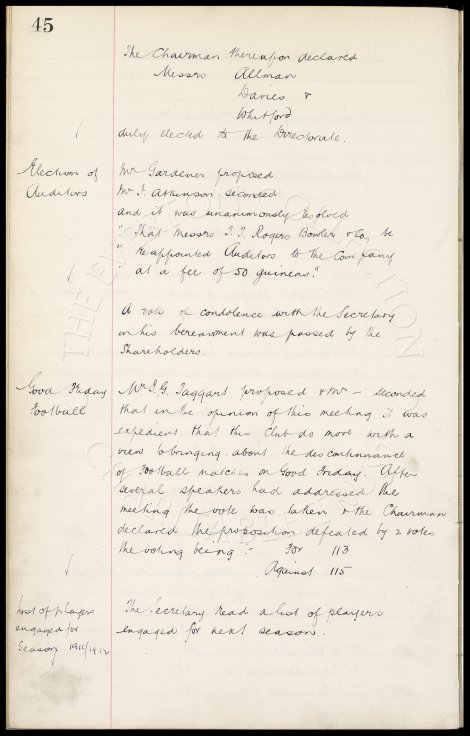 45
The Chairman thereupon declared
Messrs Allman
Davies &
Whitford
duly elected to the Directorate.
Election of
Auditors
Mr Gardener proposed
Mr J. Atkinson seconded
and it was unanimously resolved
"That Messrs T. J. Rogers Bowler & Co, be
" re-appointed Auditors to the Company
" at a fee of 50 guineas."
A vote of condolence with the Secretary
in his bereavement was passed by the
Shareholders.
Good Friday
Football
Mr J. G. Taggart proposed & Mr — seconded
that in the opinion of this meeting it was
expedient that this Club do move with a
view to bringing about the discontinuance
of Football matches on Good Friday. After
several speakers had addressed the
meeting the vote was taken & the Chairman
declared the proposition defeated by 2 votes
the voting being :- For 113
Against 115
List of players
engaged for
Season 1911/1912
The Secretary read a list of players
engaged for next season.
THE EVERTON COLLECTION